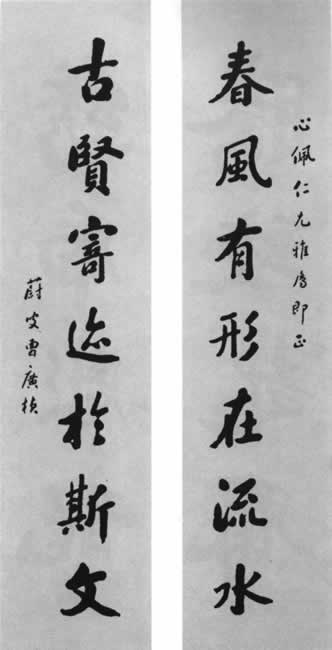 心佩仁兄雅属即正
春風有形在流水
古賢寄迹於斯文
蔚叟曹廣楨